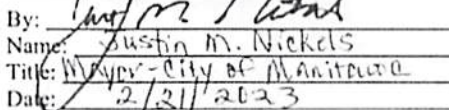 By:
Name: Justin M. Nickels
Title: Mayor-City of Manitowoc
Date: 2/21/2023